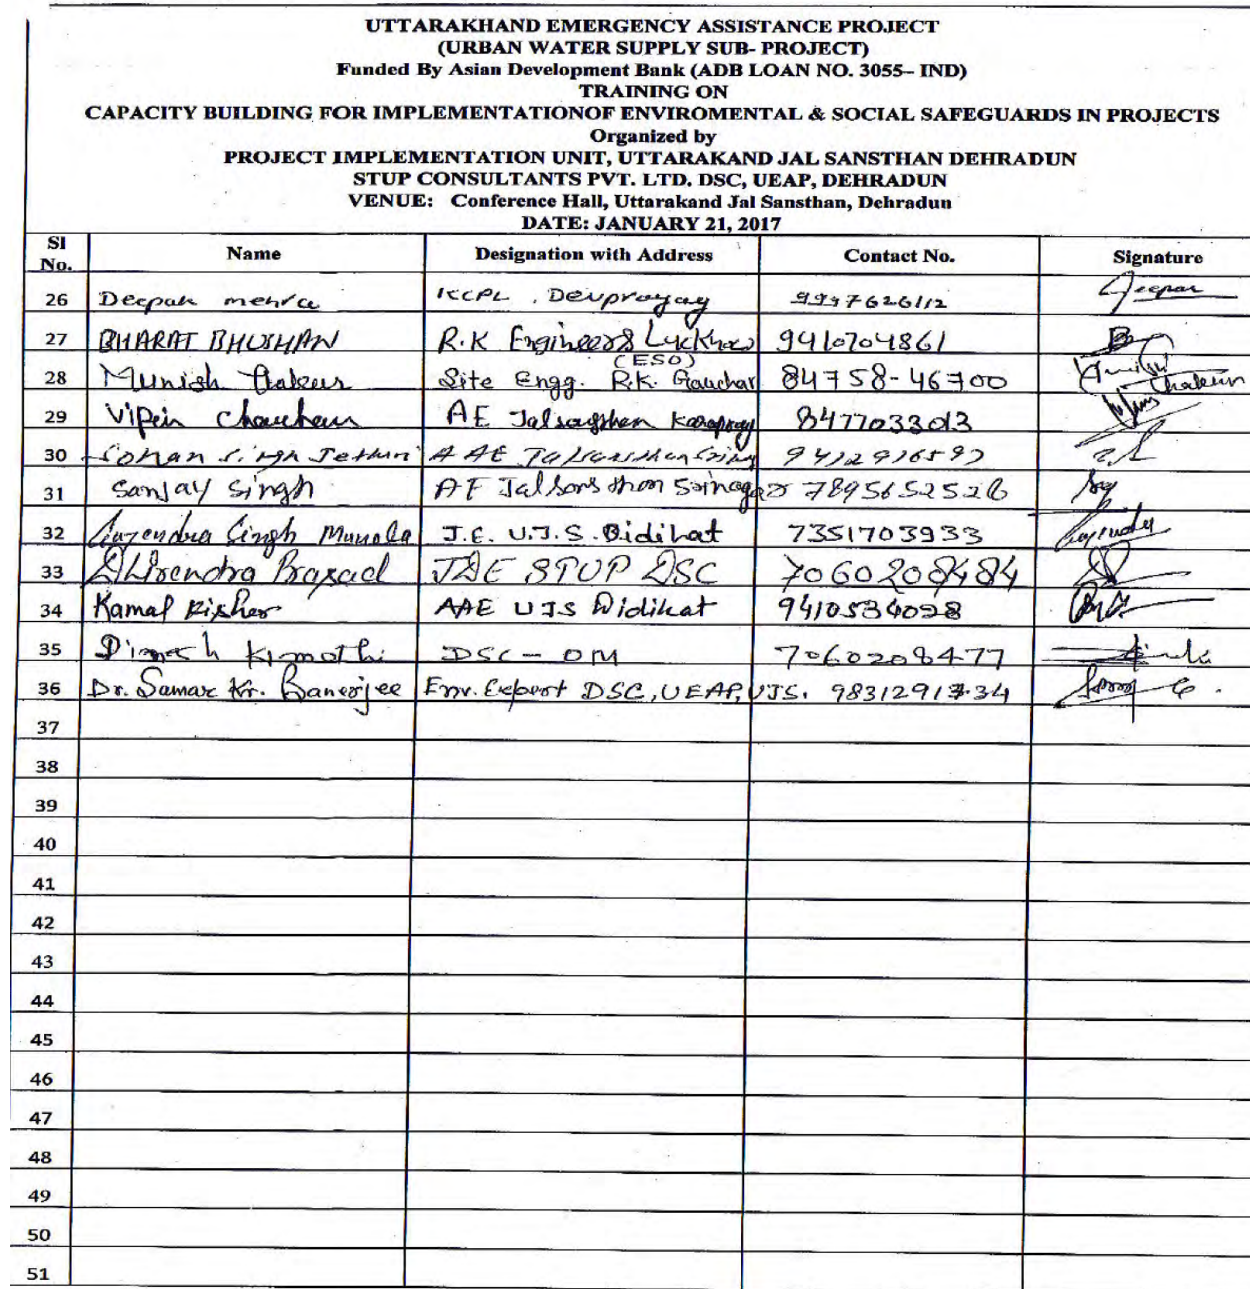 UTTARAKHAND EMERGENCY ASSISTANCE PROJECT
(URBAN WATER SUPPLY SUB- PROJECT)
Funded By Asian Development Bank (ADB LOAN NO. 3055– IND)
TRAINING ON
CAPACITY BUILDING FOR IMPLEMENTATIONOF ENVIROMENTAL & SOCIAL SAFEGUARDS IN PROJECTS
Organized by
PROJECT IMPLEMENTATION UNIT, UTTARAKAND JAL SANSTHAN DEHRADUN
STUP CONSULTANTS PVT. LTD. DSC, UEAP, DEHRADUN
VENUE: Conference Hall, Uttarakand Jal Sansthan, Dehradun
DATE: JANUARY 21, 2017
Sl No. Name Designation with Address Contact No. Signature
26 Deepak mehra KCPL, Devprayag 9997626112 Deepak
27 BHARAT BHUSHAN R.K Engineers Lucknow 9410704861
28 Munish Thakur (ESO) Site Engg. R.K. Gauchar 84758-46700 Munish Thakur
29 Vipin Chauhan AE Jalsansthan 8477033013
30 Sohan Singh AAE Jalsansthan
31 Sanjay Singh AE Jalsansthan Srinagar 7895652526
32 Gajendra Singh J.E. U.J.S. Didihat 7351703933
33 Dhirendra Prasad STUP DSC 7060208484
34 Kamal Kishor AAE UJS Didihat 9410534098
35 Dinesh Kimothi DSC – OM 7060208477
36 Dr. Samar Kr. Banerjee Env. Expert DSC, UEAP, UJS. 9831291734
37
38
39
40
41
42
43
44
45
46
47
48
49
50
51